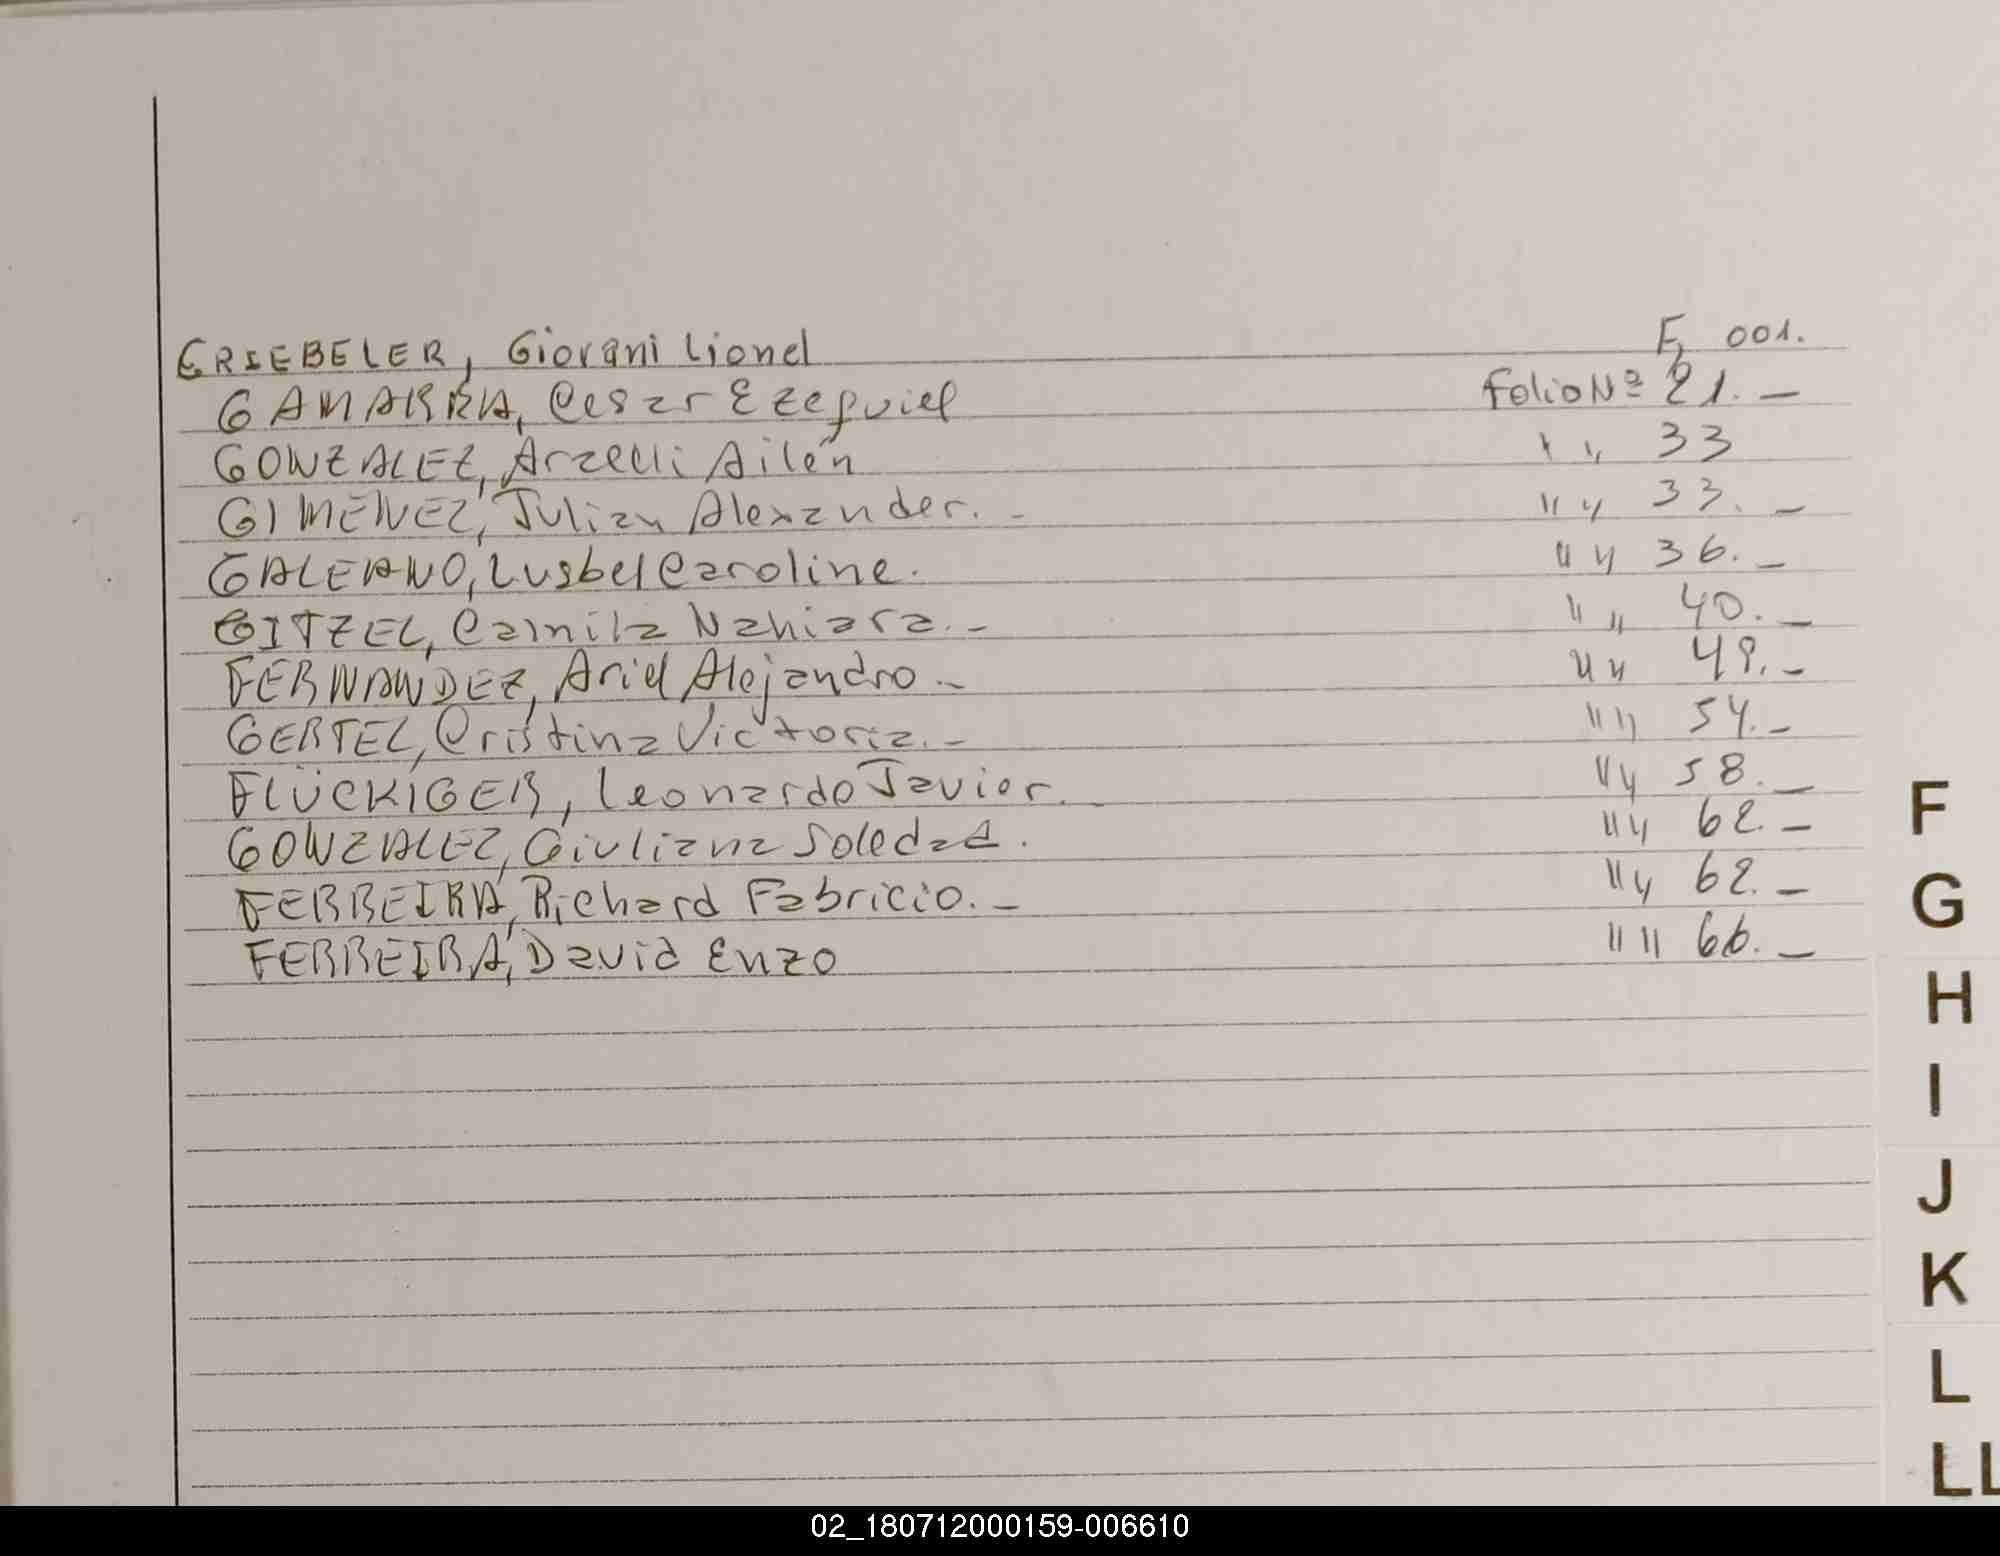 GRIEBELER, Giovani Lionel F, 001.
GAMARRA, Cesar Ezequiel Folio Nº 21. -
GONZALEZ, Arzelli Ailén " " 33
GIMENEZ, Julian Alexander. - " " 33. -
GALEANO, Lusbel Caroline. " " 36. -
GITZEL, Camila Nahiara. - " " 40. -
FERNANDEZ, Ariel Alejandro. - " " 49. -
GERTEL, Cristina Victoria. - " " 54. -
FLÜCKIGER, Leonardo Javier. - " " 58. -
GONZALEZ, Giuliana Soledad. " " 62. -
FERREIRA, Richard Fabricio. - " " 62. -
FERREIRA, David Enzo " " 66. -
F
G
H
I
J
K
L
LL
02_180712000159-006610